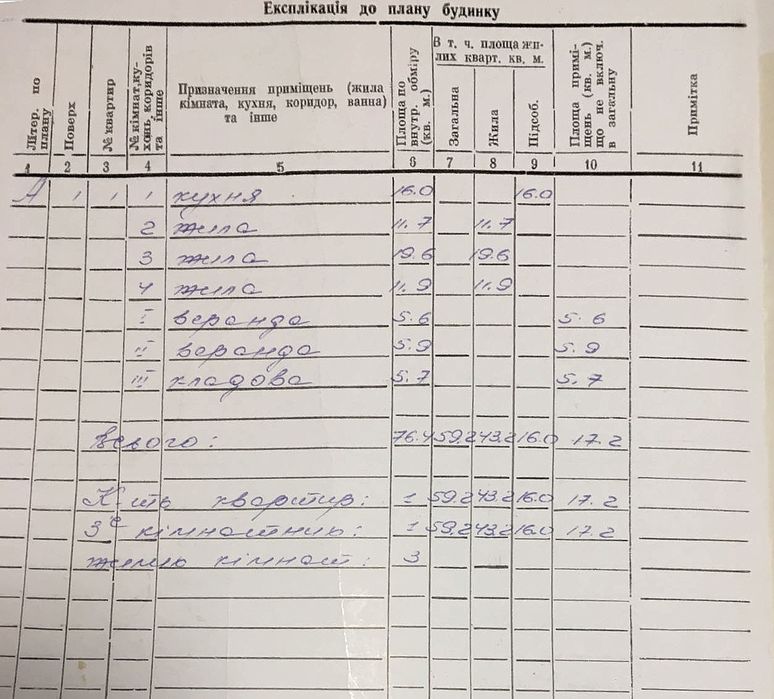 Експлікація до плану будинку
Літер. по плану
Поверх
№ квартир
№ кімнат, кухонь, коридорів та інше
Призначення приміщень (жила кімната, кухня, коридор, ванна) та інше
Площа по внутр. обміру (кв. м.)
В т. ч. площа жилих кварт. кв. м.
Загальна
Жила
Підсоб.
Площа приміщень (кв. м.) що не включ. в загальну
Примітка
1 2 3 4 5 6 7 8 9 10 11
А 1 1 1 кухня 16.0 16.0
2 жила 11.7 11.7
3 жила 19.6 19.6
4 жила 11.9 11.9
I веранда 5.6 5.6
II веранда 5.9 5.9
III кладова 5.7 5.7
Всього: 76.4 59.2 43.2 16.0 17.2
К-ть квартир: 1 59.2 43.2 16.0 17.2
3х кімнатних: 1 59.2 43.2 16.0 17.2
жилих кімнат: 3